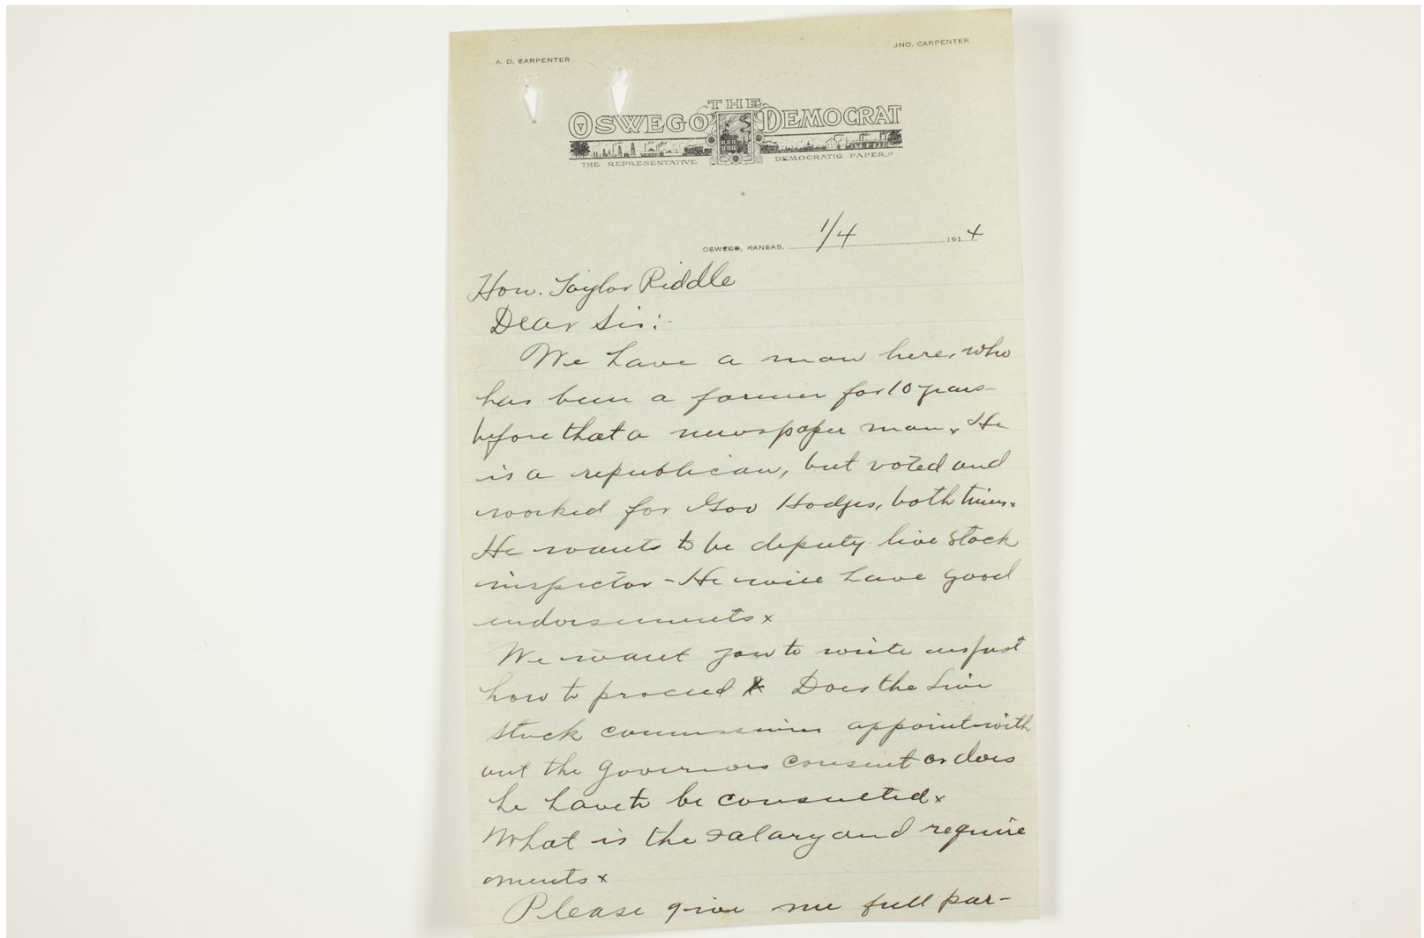 A. D. CARPENTER
JNO. CARPENTER
THE
OSWEGO DEMOCRAT
THE REPRESENTATIVE DEMOCRATIC PAPER
OSWEGO, KANSAS, 1/4 1914
Hon. Taylor Riddle
Dear Sir:-
We have a man here, who
has been a farmer for 10 years-
before that a newspaper man x He
is a republican, but voted and
worked for Gov Hodges, both times.
He wants to be deputy live stock
inspector - He will have good
endorsements x
We want you to write us just
how to proceed x Does the Live
stock commission appoint with
out the Governors consent or does
he have to be consulted x
What is the salary and require
ments x
Please give me full par-